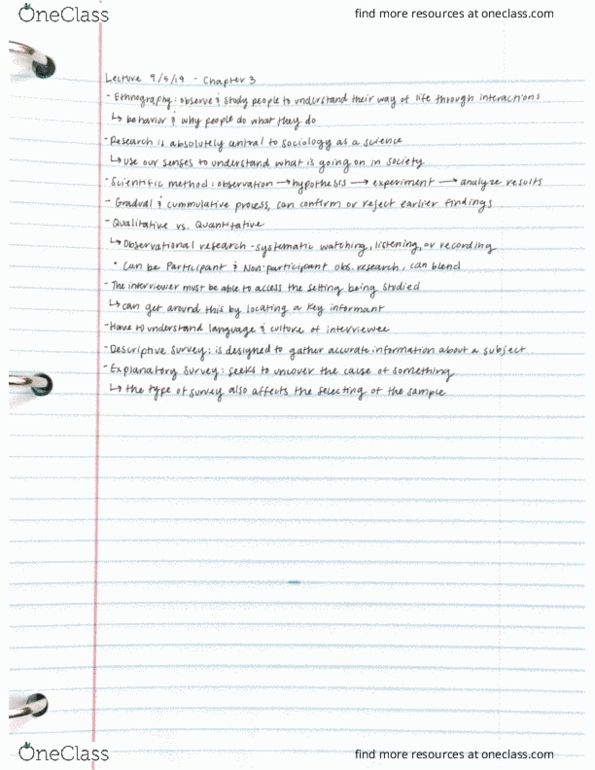 OneClass find more resources at oneclass.com
Lecture 9/5/19 - Chapter 3
- Ethnography: observe & study people to understand their way of life through interactions
↳ behavior & why people do what they do
- Research is absolutely central to sociology as a science
↳ use our senses to understand what is going on in society
- Scientific method: observation → hypothesis → experiment → analyze results
- Gradual & cummulative process, can confirm or reject earlier findings
- Qualitative vs. Quantitative
↳ Observational research - systematic watching, listening, or recording
• Can be Participant & Non-participant obs. research, can blend
- The interviewer must be able to access the setting being studied
↳ can get around this by locating a key informant
- Have to understand language & culture of interviewee
- Descriptive survey: is designed to gather accurate information about a subject
- Explanatory survey: seeks to uncover the cause of something
↳ the type of survey also affects the selecting of the sample
OneClass find more resources at oneclass.com